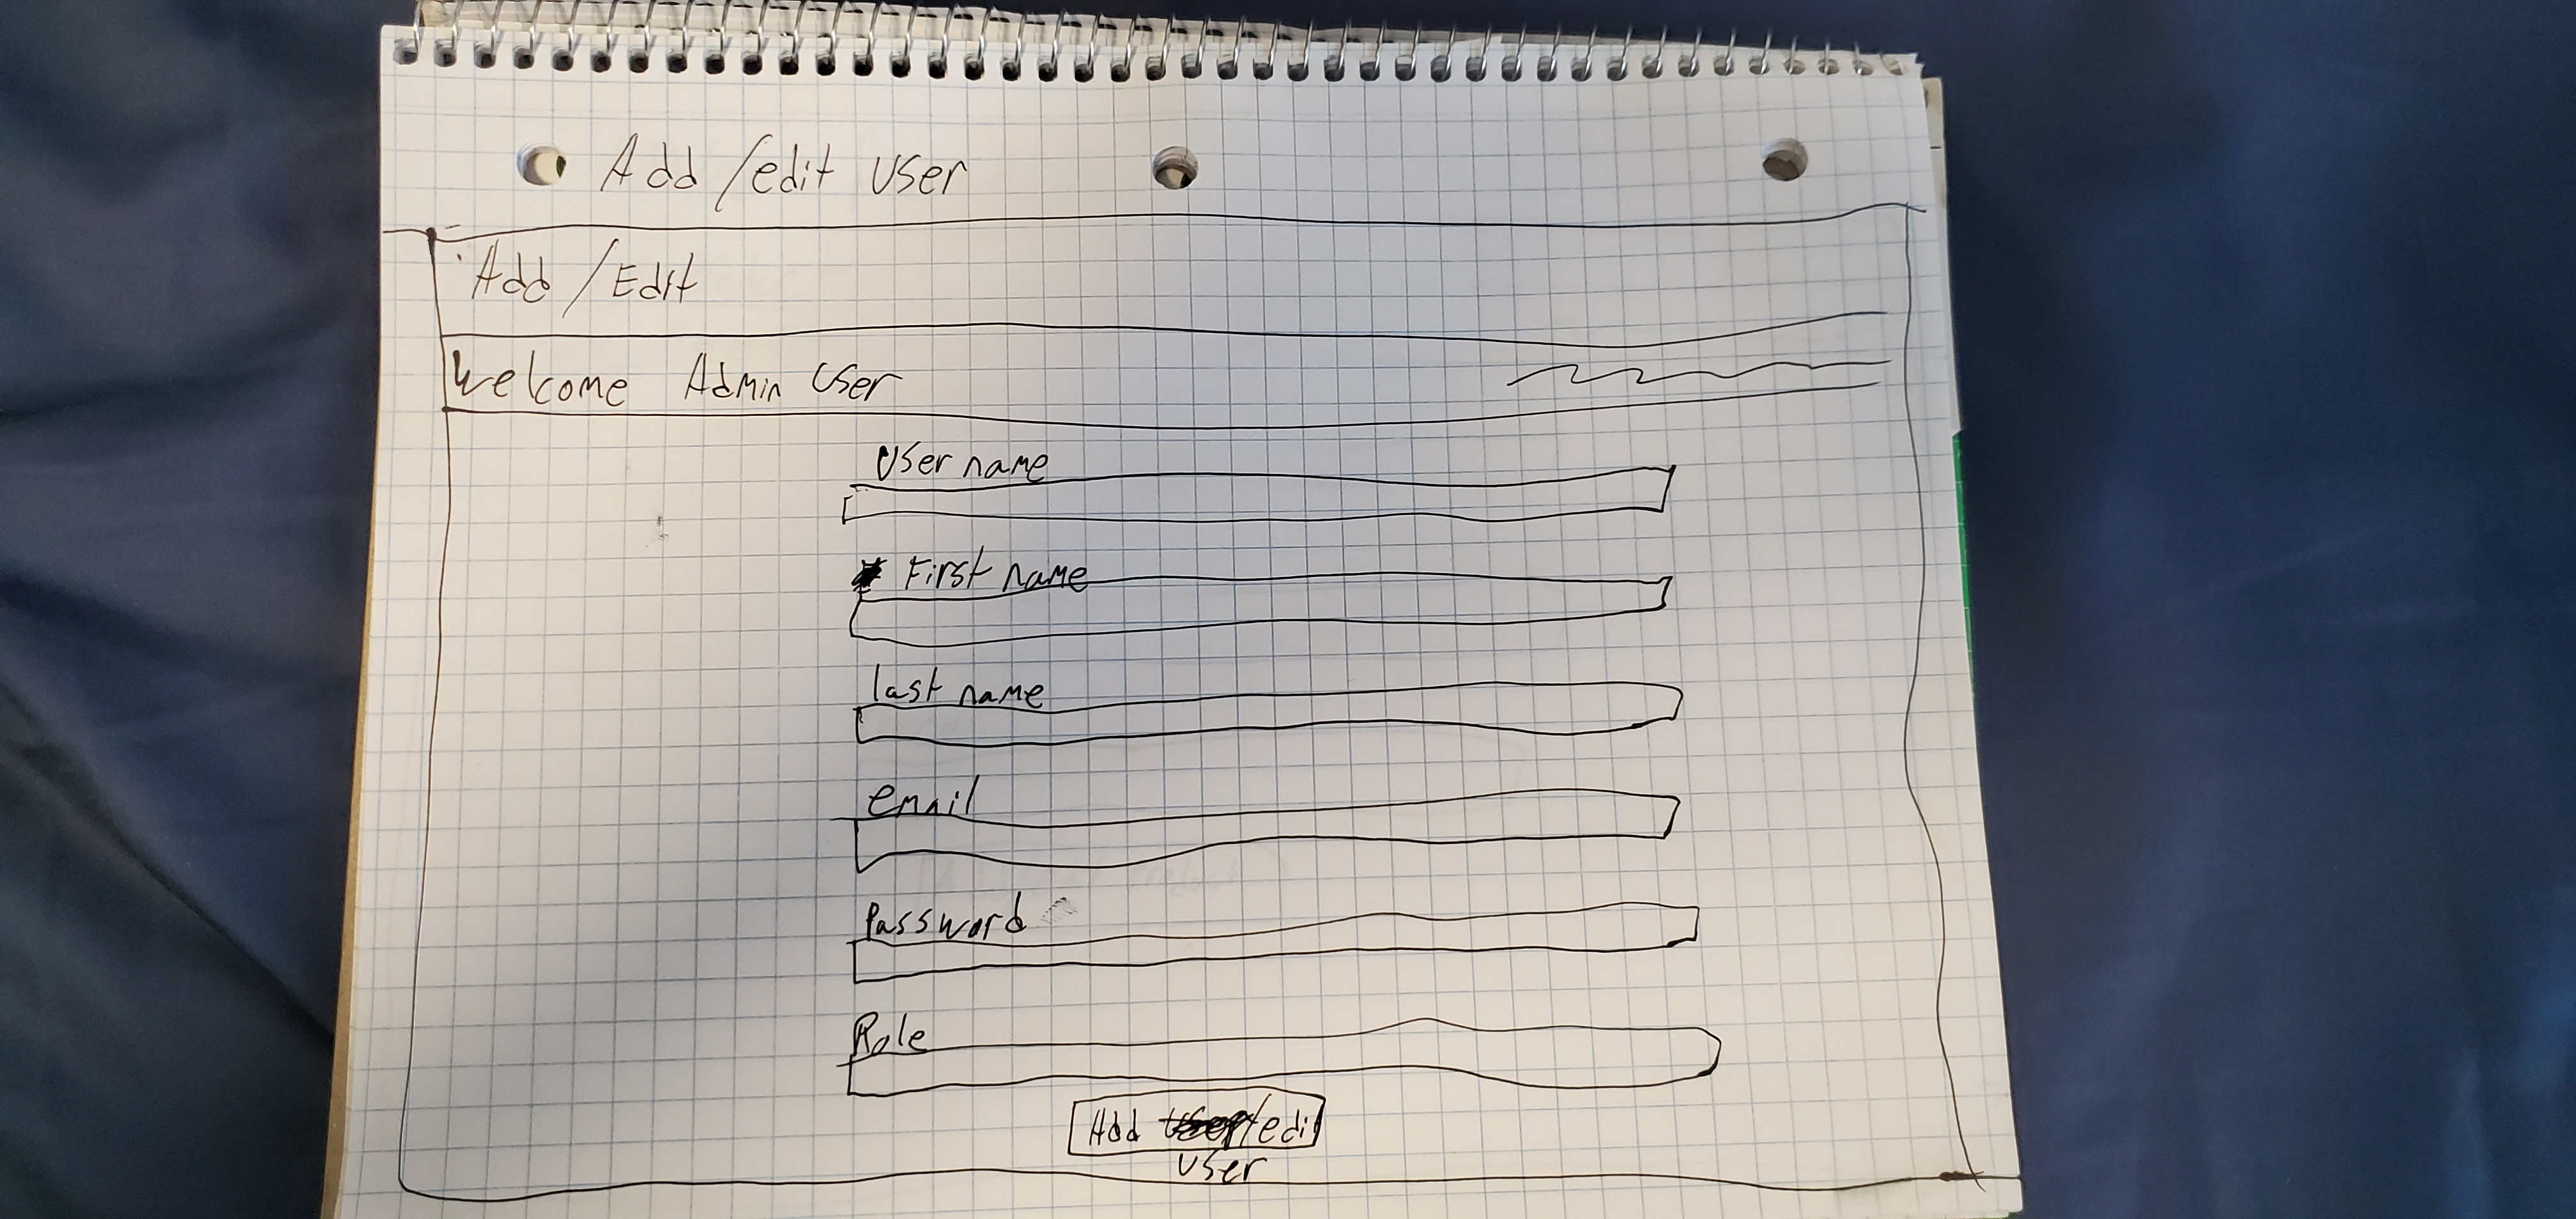 Add/edit User
Add/Edit
Welcome Admin User
User name
First name
last name
email
Password
Role
Add /edit
User